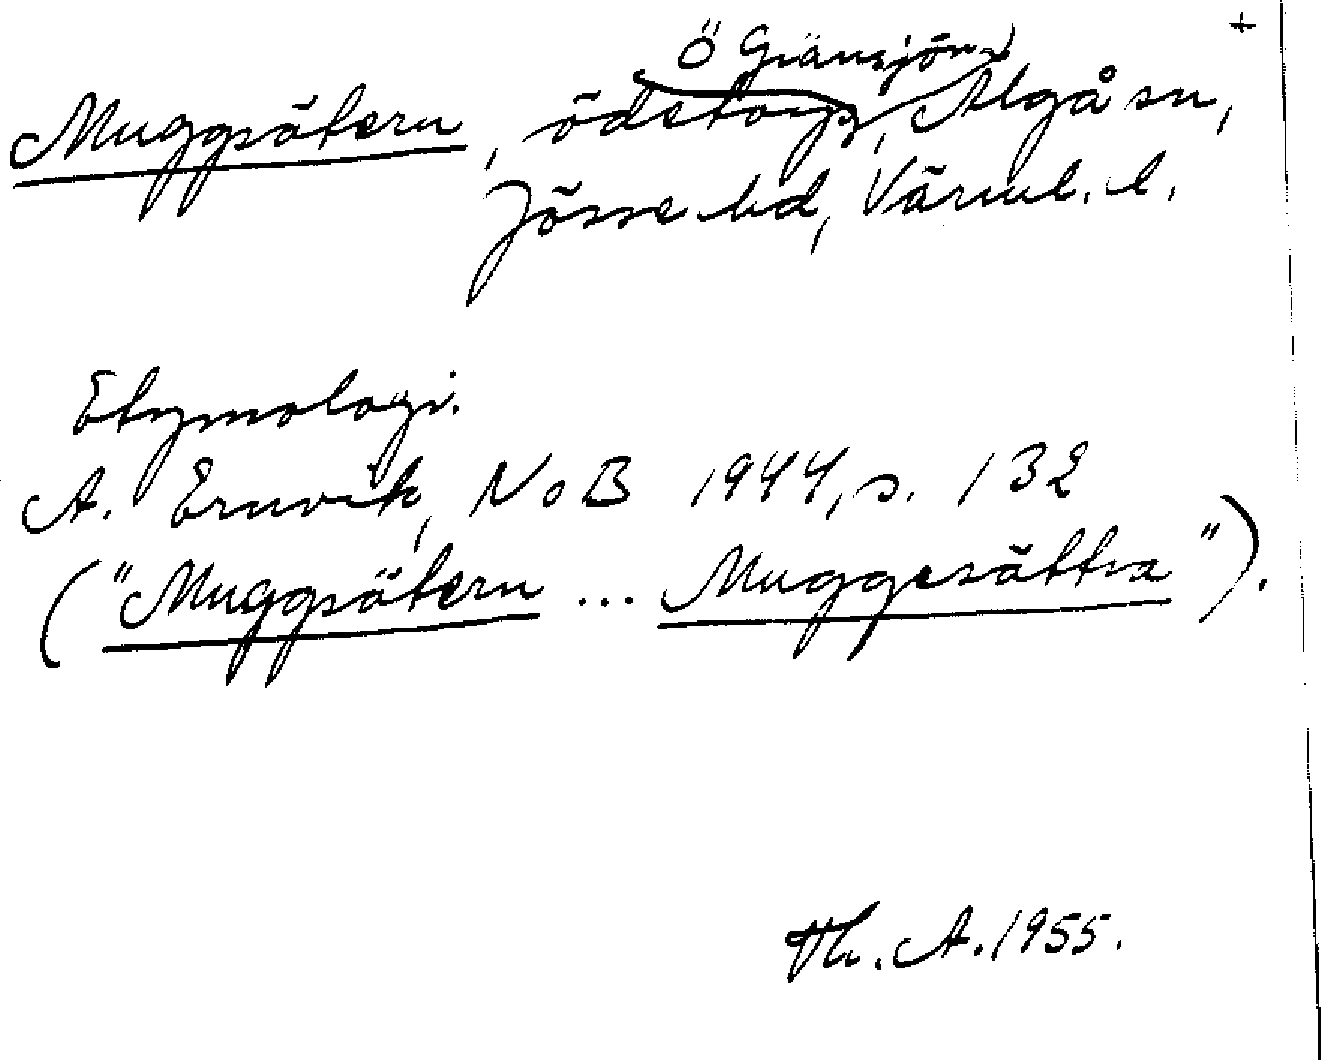 +
Ö Gränsjön
Muggsätern, ödetorp, Älgå sn,
Jösse hd, Värml. l.
Etymologi.
A. Ernvik, NoB 1944, s. 132
("Muggsätern ... Muggesättra").
Th. A. 1955.